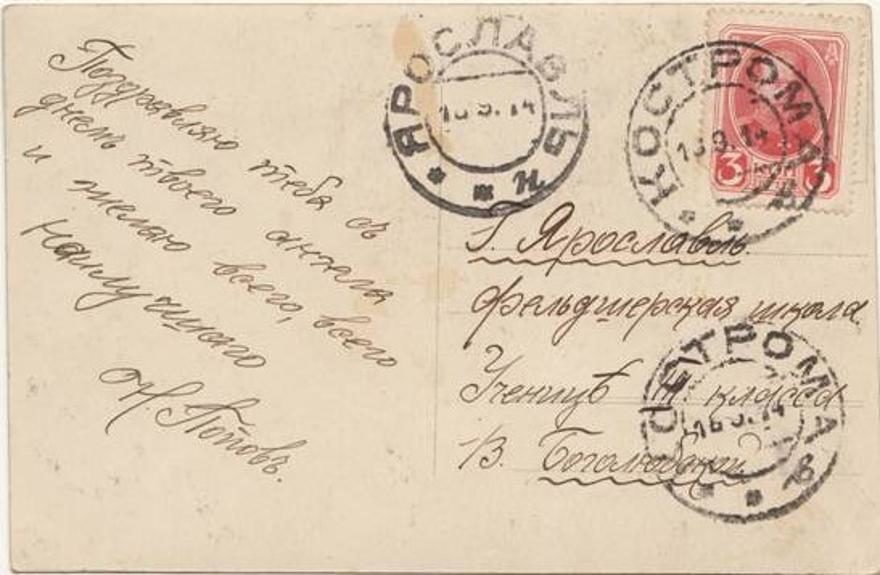 Поздравляю тебя съ
днемъ твоего ангела
и желаю всего, всего
наилучшаго
Н. Поповъ.
ЯРОСЛАВЛЬ
9.14
КОСТРОМА
9.14
3 3
г. Ярославль.
фельдшерская школа
Ученицѣ класса
В. Боголюбской
КОСТРОМА
9.14